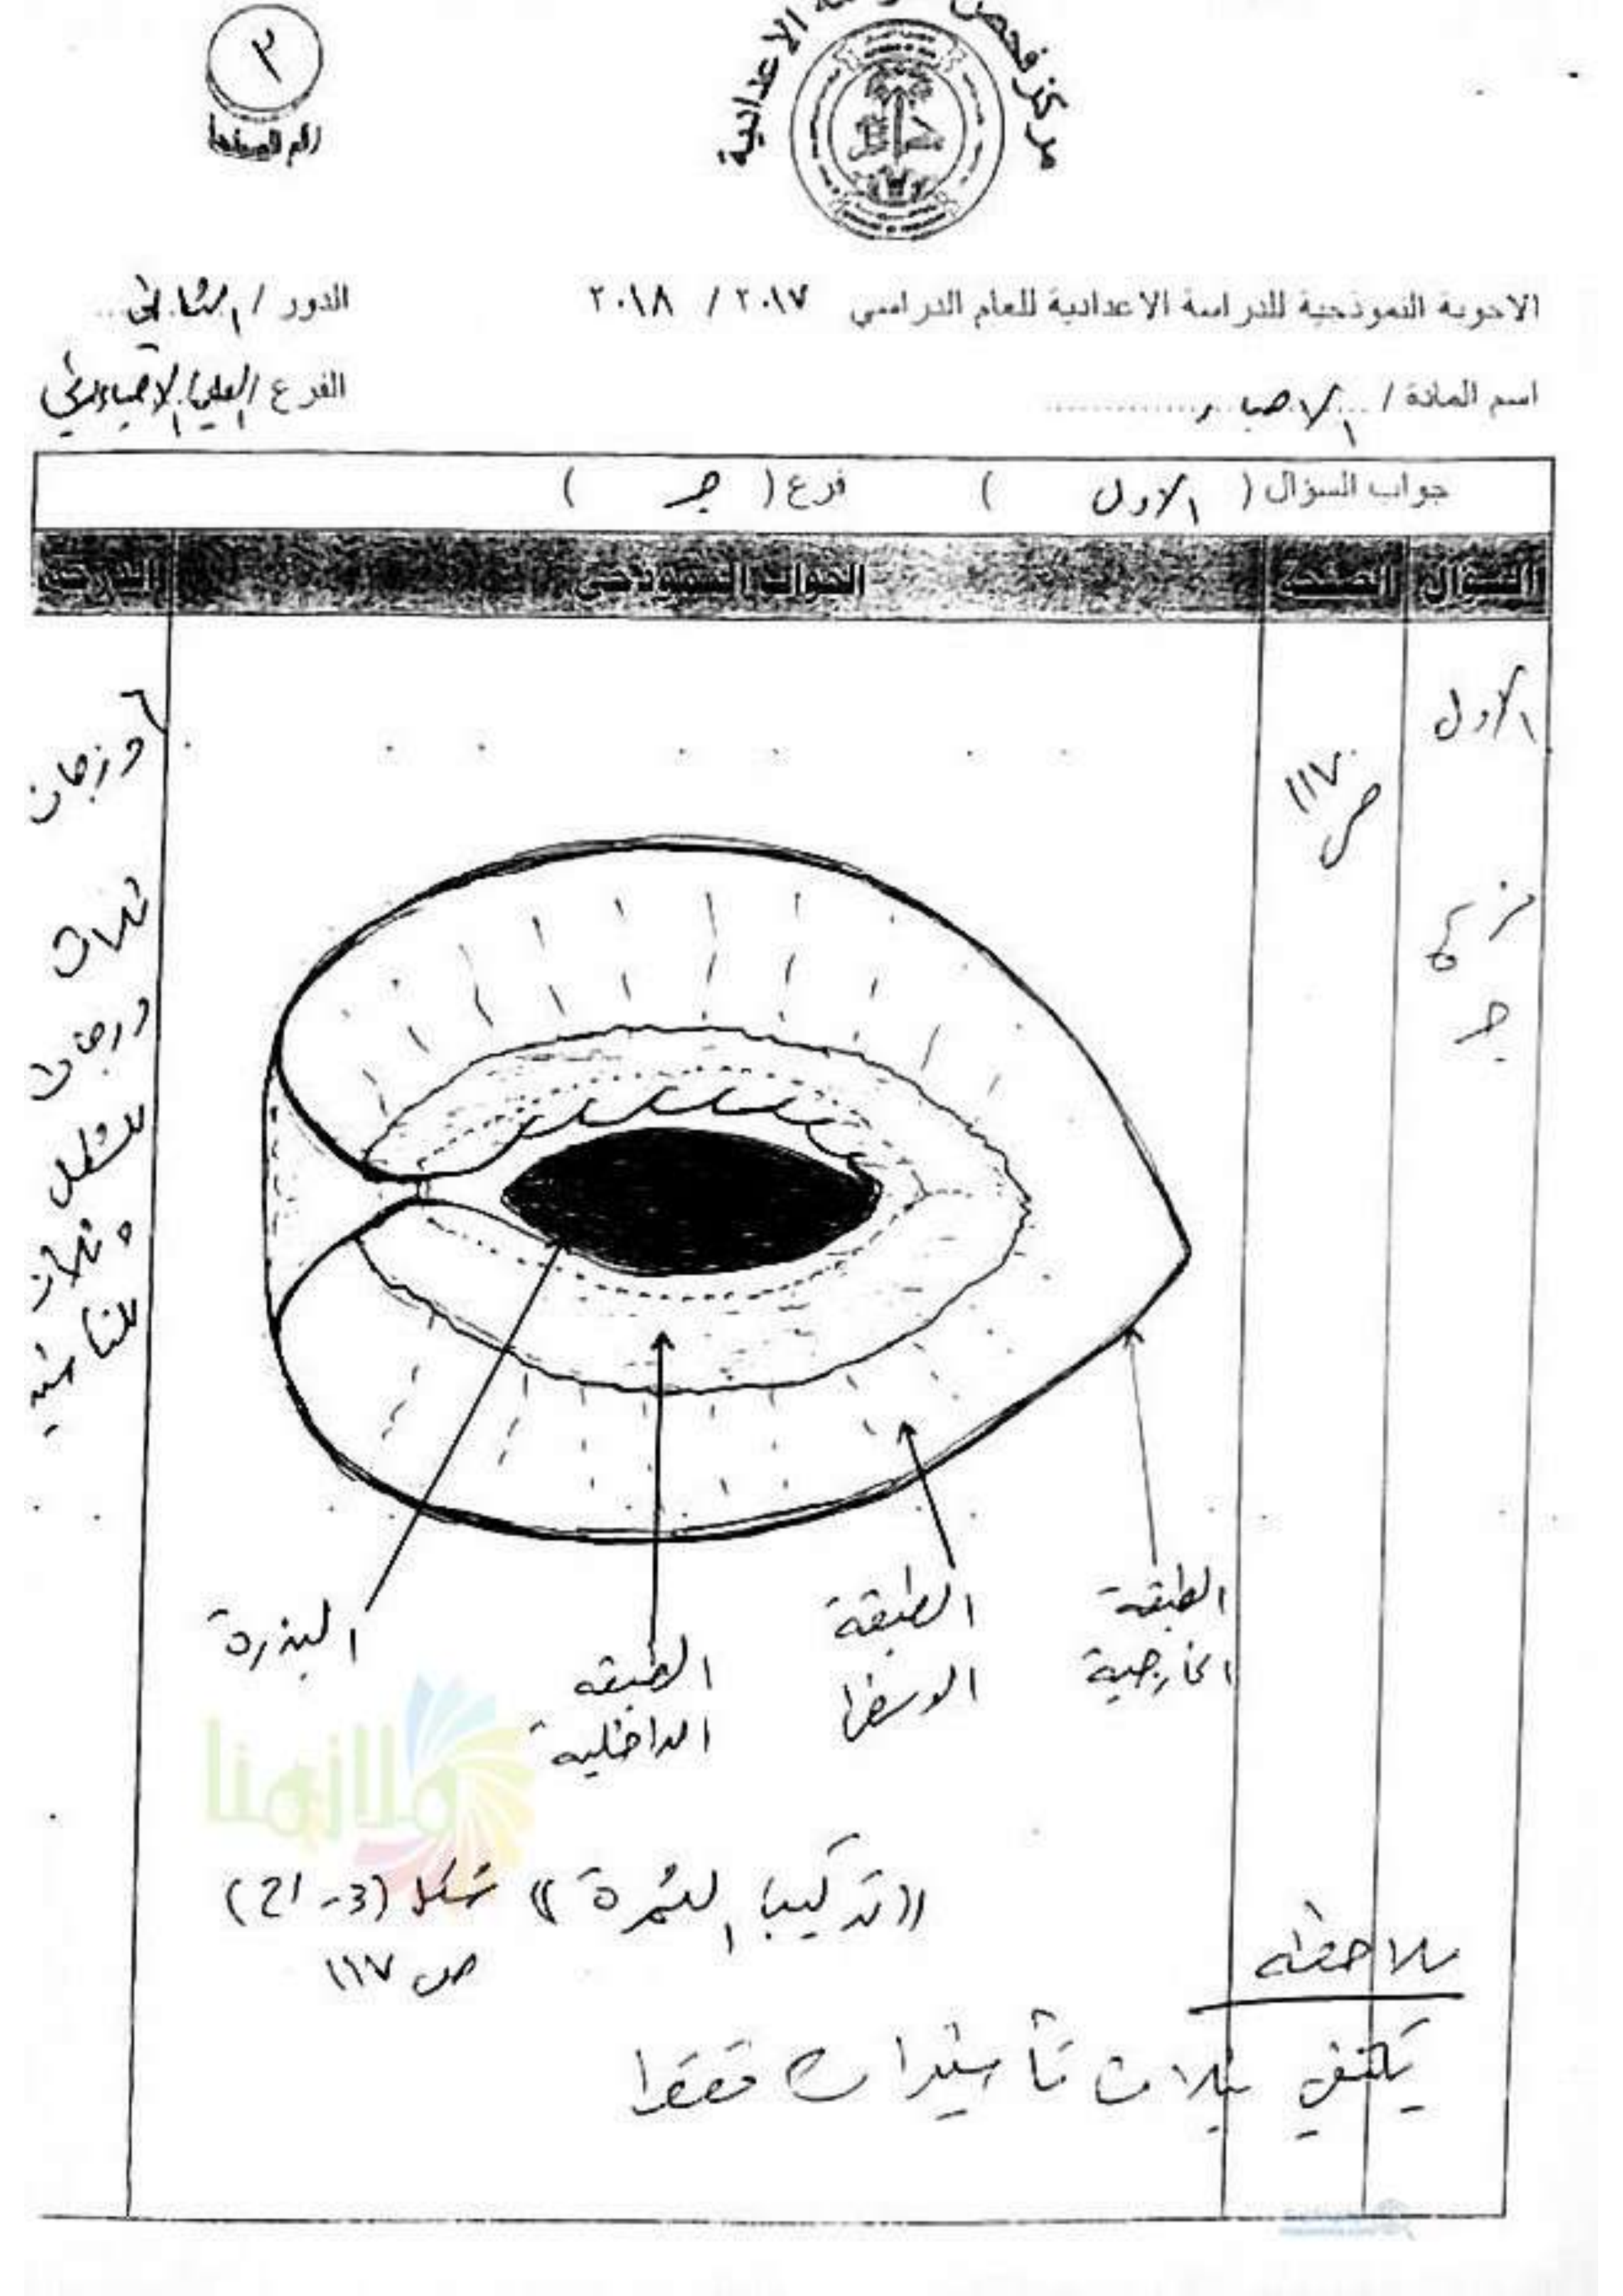 ٣
رقم الصفحة
مركز فحص الدراسة الاعدادية
الاجوبة النموذجية للدراسة الاعدادية للعام الدراسي ٢٠١٧ / ٢٠١٨
الدور / الثاني
اسم المادة / الاحياء
الفرع / العلمي الاحيائي
جواب السؤال ( الاول ) فرع ( جـ )
السؤال الصفحة الجواب النموذجي الدرجة
الاول
فرع
جـ
ص ١١٧
٦
درجات
ثلاث
درجات
للشكل
وثلاث
للتأشير
الطبقة
الخارجية
الطبقة
الوسطى
الطبقة
الداخلية
البذرة
((تركيب الثمرة)) شكل (3-21)
ص ١١٧
ملاحظة
يكتفى بثلاث تأشيرات فقط
ملازمنا